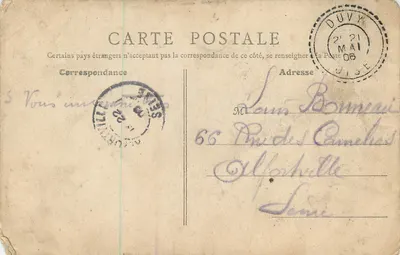 CARTE POSTALE
Certains pays étrangers n'acceptant pas la correspondance de ce côté, se renseigner à la Poste
Correspondance
Adresse
DUVY
21
MAI
06
OISE
Vous
SEINE
22
M Louis
66 Rue des Camélias
Alfortville
Seine